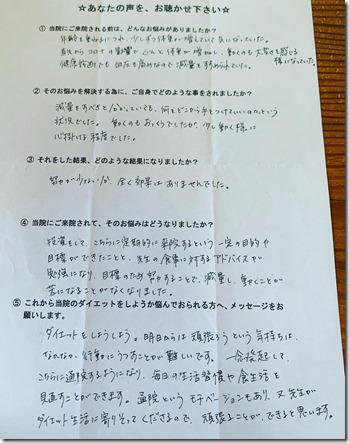 ☆あなたの声を、お聴かせ下さい☆
① 当院にご来院される前は、どんなお悩みがありましたか？
年齢を重ねるにつれ、少しずつ体重が増えていて気になっていた。
コロナの影響で 体重が増加し、動くのも大変さを感じる
様になっていた。
健康診断でも 血圧も高めなので減量を すすめられていた。
② そのお悩みを解決する為に、ご自身でどのような事をされましたか？
減量をすべきと分かっていても、何をどこから手をつけていいのかという
状況でした。 動くのもおっくうでしたが、少し動く様に
心掛ける程度でした。
③ それをした結果、どのような結果になりましたか？
努力が少ない分、全く効果はありませんでした。
④ 当院にご来院されて、そのお悩みはどうなりましたか？
投資をして、こちらに定期的に来院するという一定の目的や
目標ができたことと、先生の食事に対するアドバイスが
勉強になり、目標のため努力することで、減量し、動くことが
苦になることがなくなりました。
⑤ これから当院のダイエットをしようか悩んでおられる方へ、メッセージをお
願いします。
ダイエットをしましょう。明日からは頑張ろうという気持ちは、
なかなか、行動にうつすことが難しいです。一念発起して、
こちらに通院するようになり、毎日の生活習慣や食生活を
見直すことができます。通院というモチベーションもあり、又先生が
ダイエット生活に寄りそってくださるので、頑張ることができると思います。